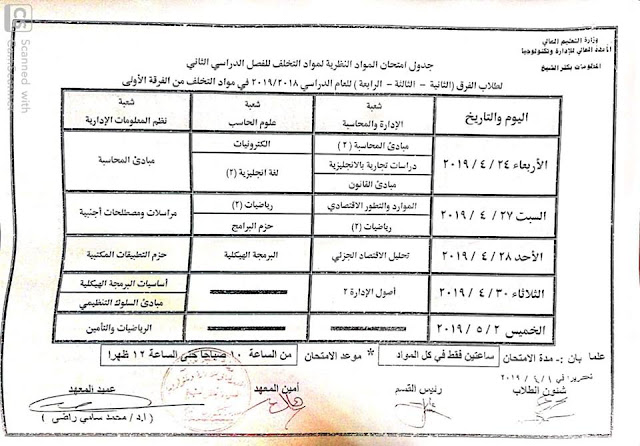 وزارة التعليم العالي
المعهد العالي للإدارة وتكنولوجيا
المعلومات بكفر الشيخ
جدول امتحان المواد النظرية لمواد التخلف للفصل الدراسي الثاني
لطلاب الفرق (الثانية - الثالثة - الرابعة) للعام الدراسي ٢٠١٩/٢٠١٨ في مواد التخلف من الفرقة الأولى
اليوم والتاريخ
شعبة الإدارة والمحاسبة
شعبة علوم الحاسب
شعبة نظم المعلومات الإدارية
الأربعاء ٢٤ / ٤ / ٢٠١٩
مبادئ المحاسبة (٢)
دراسات تجارية بالانجليزية
مبادئ القانون
الكترونيات
لغة انجليزية (٢)
مبادئ المحاسبة
السبت ٢٧ / ٤ / ٢٠١٩
الموارد والتطور الاقتصادي
رياضيات (٢)
رياضيات (٢)
حزم البرامج
مراسلات ومصطلحات أجنبية
الأحد ٢٨ / ٤ / ٢٠١٩
تحليل الاقتصاد الجزئي
البرمجة الهيكلية
حزم التطبيقات المكتبية
الثلاثاء ٣٠ / ٤ / ٢٠١٩
أصول الإدارة ٢
أساسيات البرمجة الهيكلية
مبادئ السلوك التنظيمي
الخميس ٢ / ٥ / ٢٠١٩
الرياضيات والتأمين
علما بان :- مدة الامتحان ساعتين فقط في كل المواد * موعد الامتحان من الساعة ١٠ صباحا حتى الساعة ١٢ ظهرا
تحريرا في ١ / ٤ / ٢٠١٩
شئون الطلاب
رئيس القسم
أمين المعهد
عميد المعهد
( ا.د / محمد سامي راضي )
CS
Scanned with